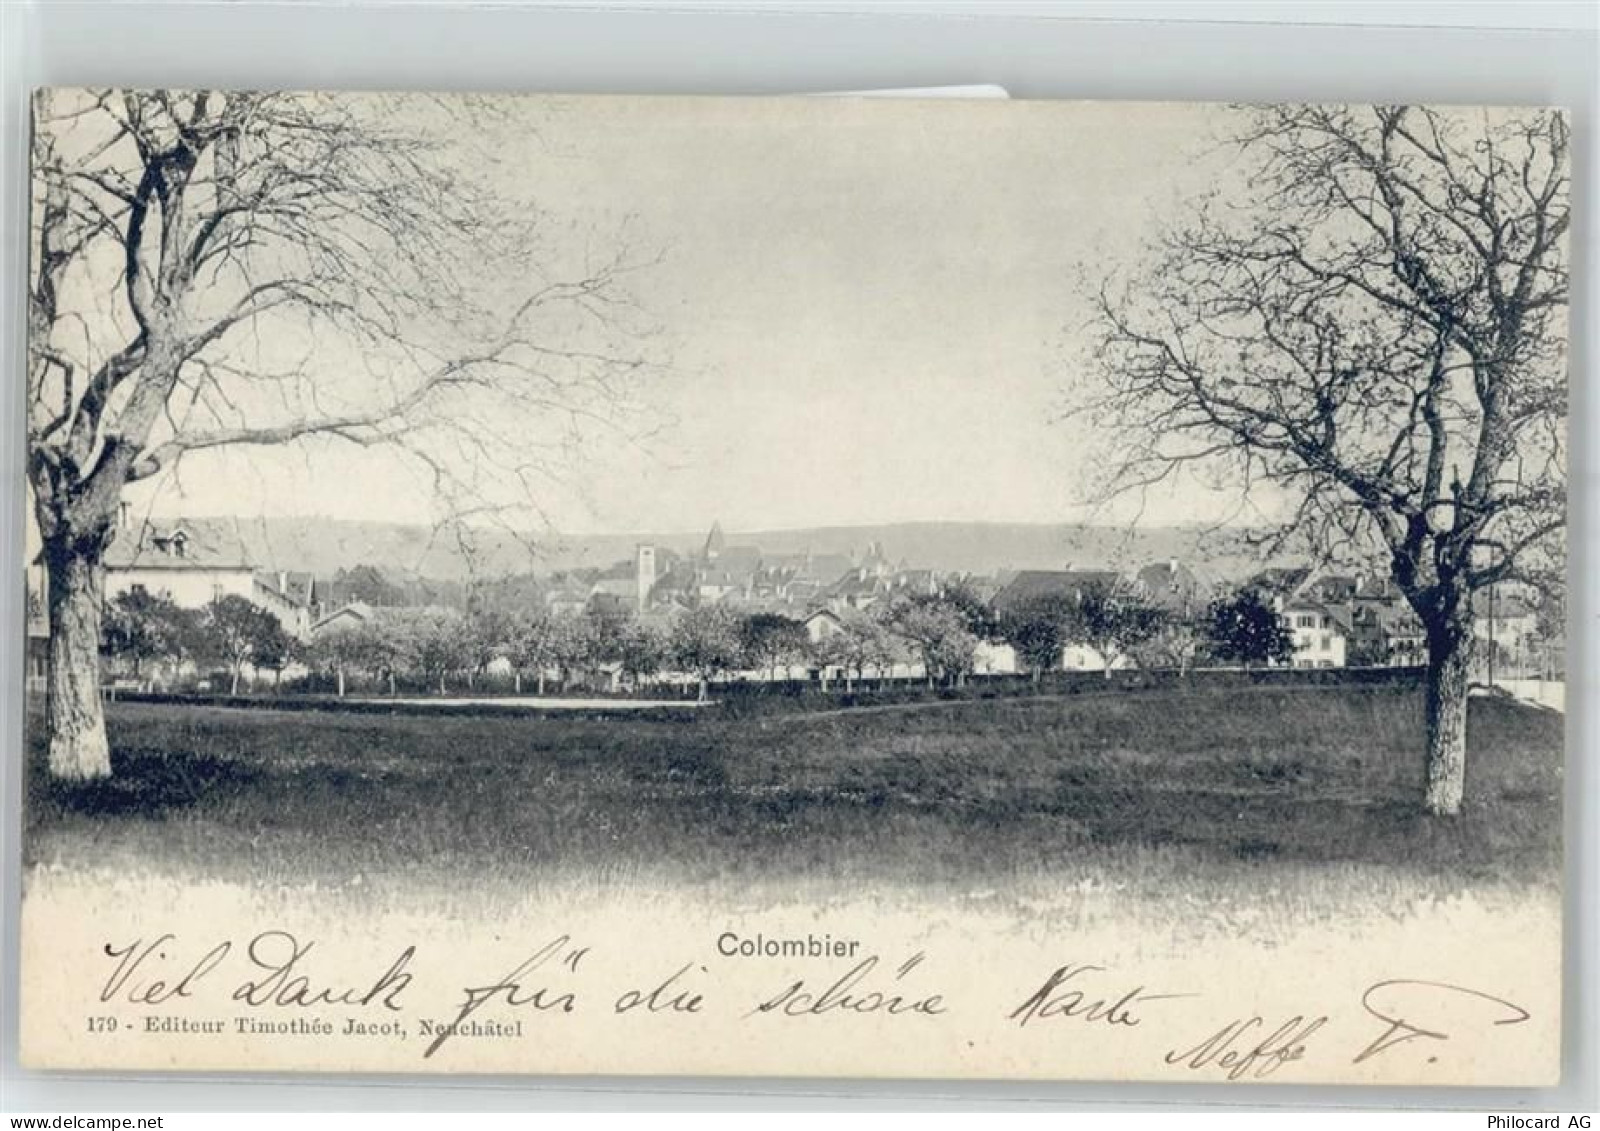 Colombier
Viel Dank für die schöne Karte
179 - Editeur Timothée Jacot, Neuchâtel
Neffe
Philocard AG